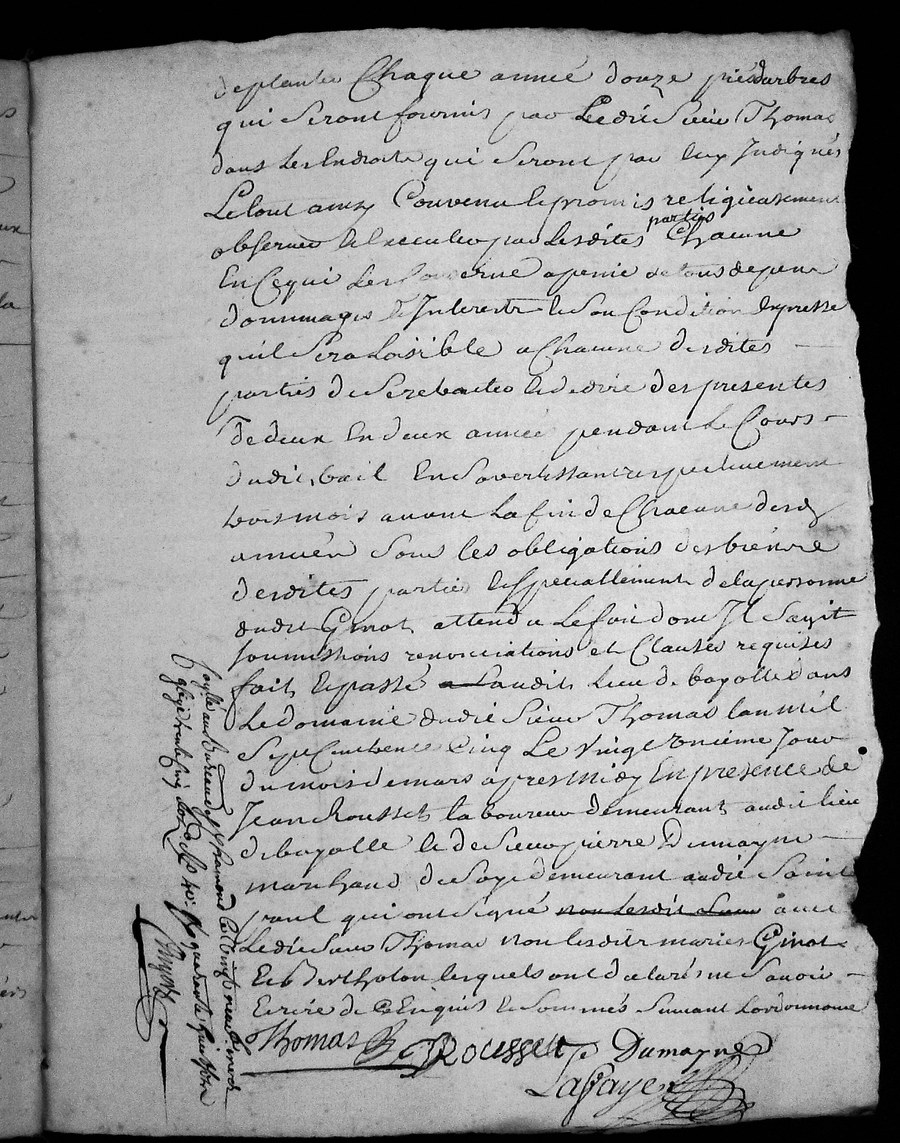 de planter Chaque année douze piés darbres
qui Seront fournis par Ledit Sieur Thomas
dans Les Endroits qui Seront par luy Indiqués
Le tout ainsy Convenu et promis religieusement
observer et Executer par Lesdites parties Chacune
En Ce qui Les Concerne a penne de tous depens
dommages et Interests et Sou Condition Expresse
quil Sera Loisible a Chacune desdites
parties de Se et de dire des presentes
De deux En deux année pendant Le Cours
dudit bail En Savertissant respectivement
trois mois avant La fin de Chacune desd
années Sous les obligations des biens
desdites parties et Speciallement de la personne
dudit Ginot attendu Le fait dont Il Sagit
Soumissions renonciations et Clauses requises
fait et passé audit Lieu de bayolle dans
Le domaine dudit Sieur Thomas Lan mil
Sept Cent cinq Le Vingt onzieme Jour
du mois de mars apres midy En presence de
Jean Rousset laboureur demeurant audit lieu
de bayolle et de Sieur pierre Dumayne
marchand de Soye demeurant audit Saint
paul qui ont Signé non Lesdit avec
Ledit Sieur Thomas non lesdits maries Ginot
Et Bertholon lesquels ont declaré ne Savoir
Ecrire de Ce Enquis et Sommés Suivant Lordonnance
Thomas Rousset Dumayne
Laffaye
au Bureau de St Chamond Le Vingt